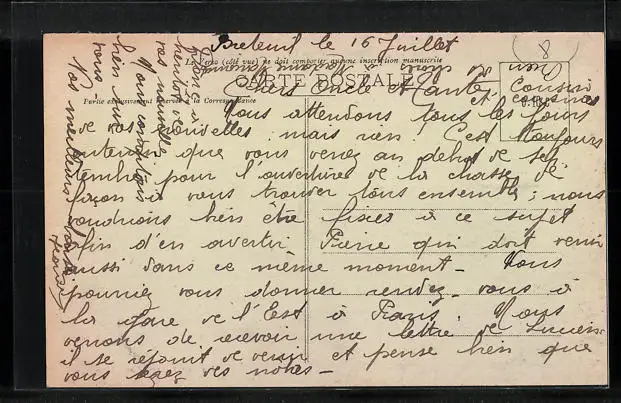 Breteuil le 16 Juillet
Le Verso (côté vue) ne doit comporter aucune inscription manuscrite
CARTE POSTALE
Partie exclusivement réservée à la Correspondance
Chers Oncle et Tante,
Cousin
et cousines
Nous attendons tous les jours
de vos nouvelles, mais rien! C'est toujours
entendu que vous venez au début de sep
tembre pour l'ouverture de la chasse, de
façon à vous trouver tous ensemble; nous
voudrions bien être fixés à ce sujet
afin d'en avertir Pierre qui doit venir
aussi dans ce même moment - Vous
pourriez vous donner rendez-vous à
la gare de l'Est à Paris. Nous
venons de recevoir une lettre de Lucien
il se réjouit de venir et pense bien que
vous serez des nôtres -
vos nouvelles
Nous comptons
bien sur
vous
Nos meilleurs
8